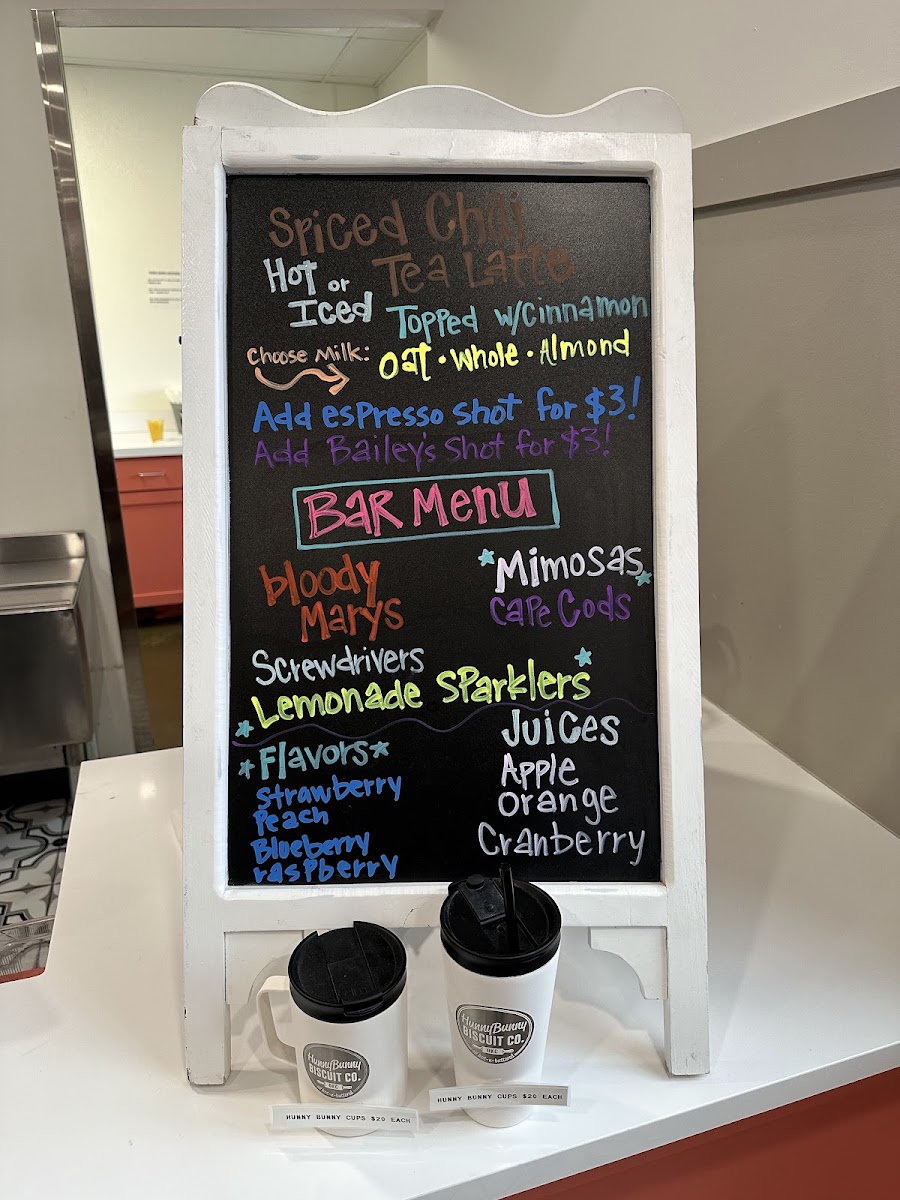 Spiced Chai
Tea Latte
Hot or
Iced
Topped w/Cinnamon
Choose Milk:
Oat • Whole • Almond
Add espresso shot for $3!
Add Bailey's shot for $3!
Bar Menu
bloody
Marys
Mimosas
Cape Cods
Screwdrivers
Lemonade Sparklers
Flavors
Strawberry
Peach
Blueberry
raspberry
Juices
Apple
orange
Cranberry
HunnyBunny
BISCUIT CO.
OKC
HunnyBunny
BISCUIT CO.
OKC
HUNNY BUNNY CUPS $20 EACH
HUNNY BUNNY CUPS $20 EACH